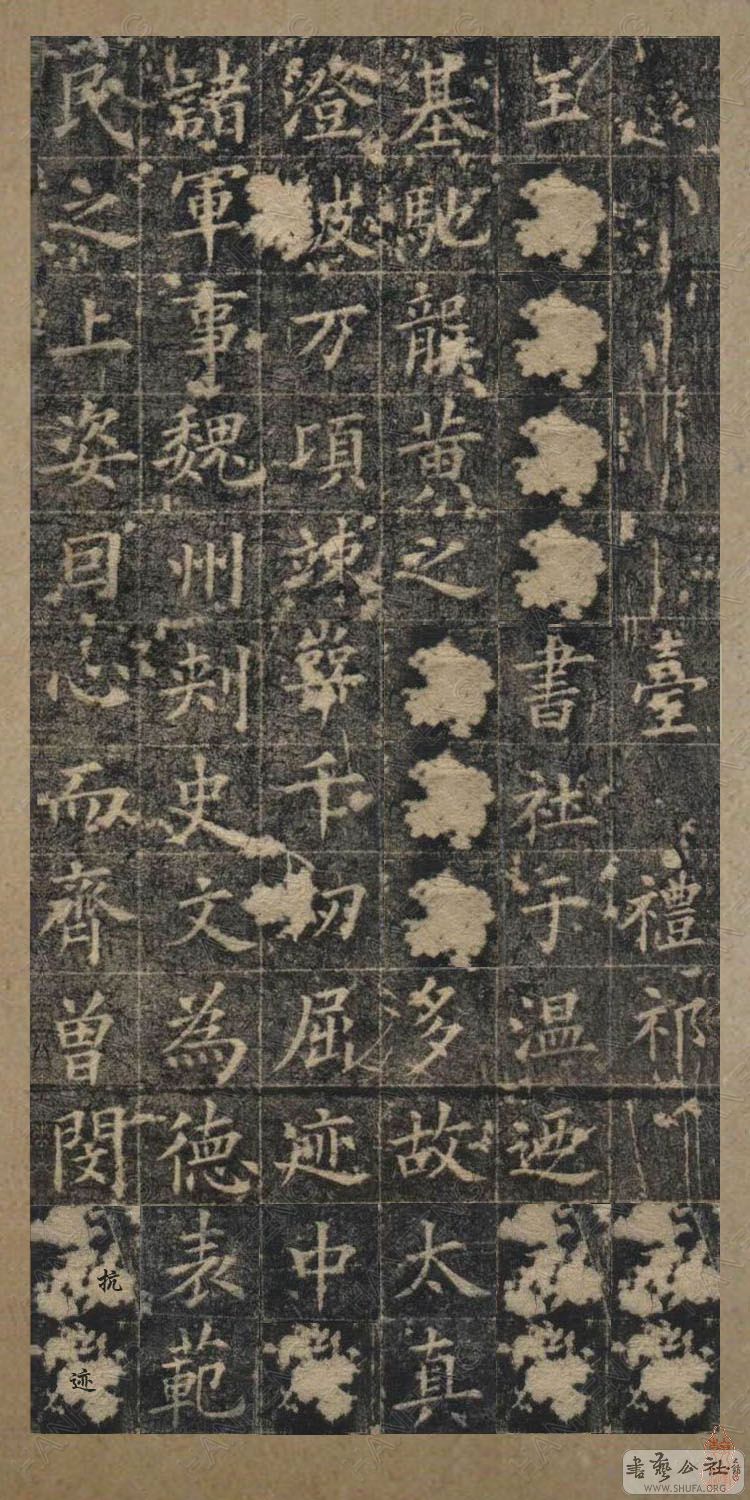 臺禮祁
王書社于温迺
基馳龔黄之多故太真
澄波万頃竦幹千仞屈迹中
諸軍事魏州刾史文為德表範
民之上姿因心而齊曾閔抗迹
書藝公社
WWW.SHUFA.ORG